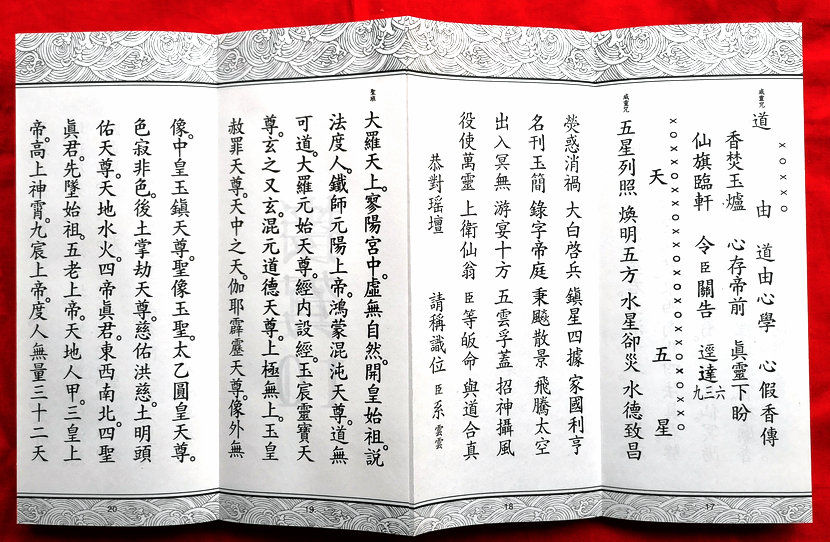 道由 道由心學 心假香傳
XOXXO
香焚玉爐 心存帝前 真靈下盼
仙旗臨軒 令臣關告 逕達 九三六
天五星
五星列照 煥明五方 水星卻災 水德致昌
17
熒惑消禍 大白啓兵 鎮星四據 家國利亨
名刊玉簡 錄字帝庭 秉飈散景 飛騰太空
出入冥無 游宴十方 五雲孚蓋 招神攝風
役使萬靈 上衛仙翁 臣等皈命 與道合真
恭對瑤壇 請稱識位 臣系雲雲
18
聖班
大羅天上。寥陽宮中。虛無自然。開皇始祖。說
法度人。鐵師元陽上帝。鴻蒙混沌天尊。道無
可道。大羅元始天尊。經内設經。玉宸靈寶天
尊。玄之又玄。混元道德天尊。上極無上。玉皇
赦罪天尊。天中之天。伽耶霹靂天尊。像外無
19
像。中皇玉鎮天尊。聖像玉聖。太乙圓皇天尊。
色寂非色。後土掌劫天尊。慈佑洪慈。土明頭
佑天尊。天地水火。四帝眞君。東西南北。四聖
眞君。先墜始祖。五老上帝。天地人甲。三皇上
帝。高上神霄。九宸上帝。度人無量三十二天
20